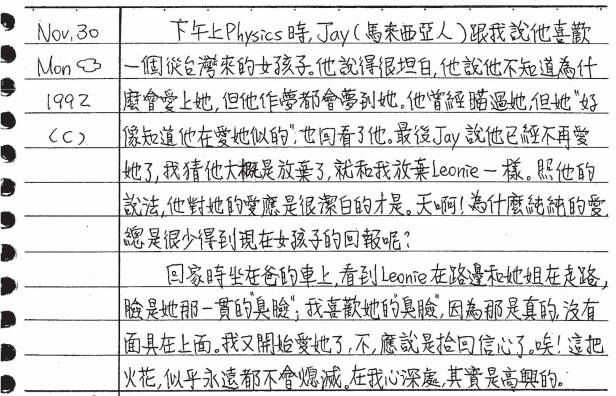 Nov. 30 下午上Physics時, Jay(馬來西亞人)跟我說他喜歡
Mon 一個從台灣來的女孩子。他說得很坦白,他說他不知道為什
1992 麼會愛上她,但他作夢都會夢到她。他曾經瞄過她,但她"好
(C) 像知道他在愛她似的",也回看了他。最後Jay說他已經不再愛
她了,我猜他大概是放棄了,就和我放棄Leonie一樣。照他的
說法,他對她的愛應是很潔白的才是。天啊!為什麼純純的愛,
總是很少得到現在女孩子的回報呢?
回家時坐在爸的車上,看到Leonie在路邊和她姐在走路,
臉是她那一貫的"臭臉";我喜歡她的"臭臉",因為那是真的,沒有
面具在上面。我又開始愛她了,不,應說是拾回信心了。唉!這把
火花,似乎永遠都不會熄滅。在我心深處,其實是高興的。